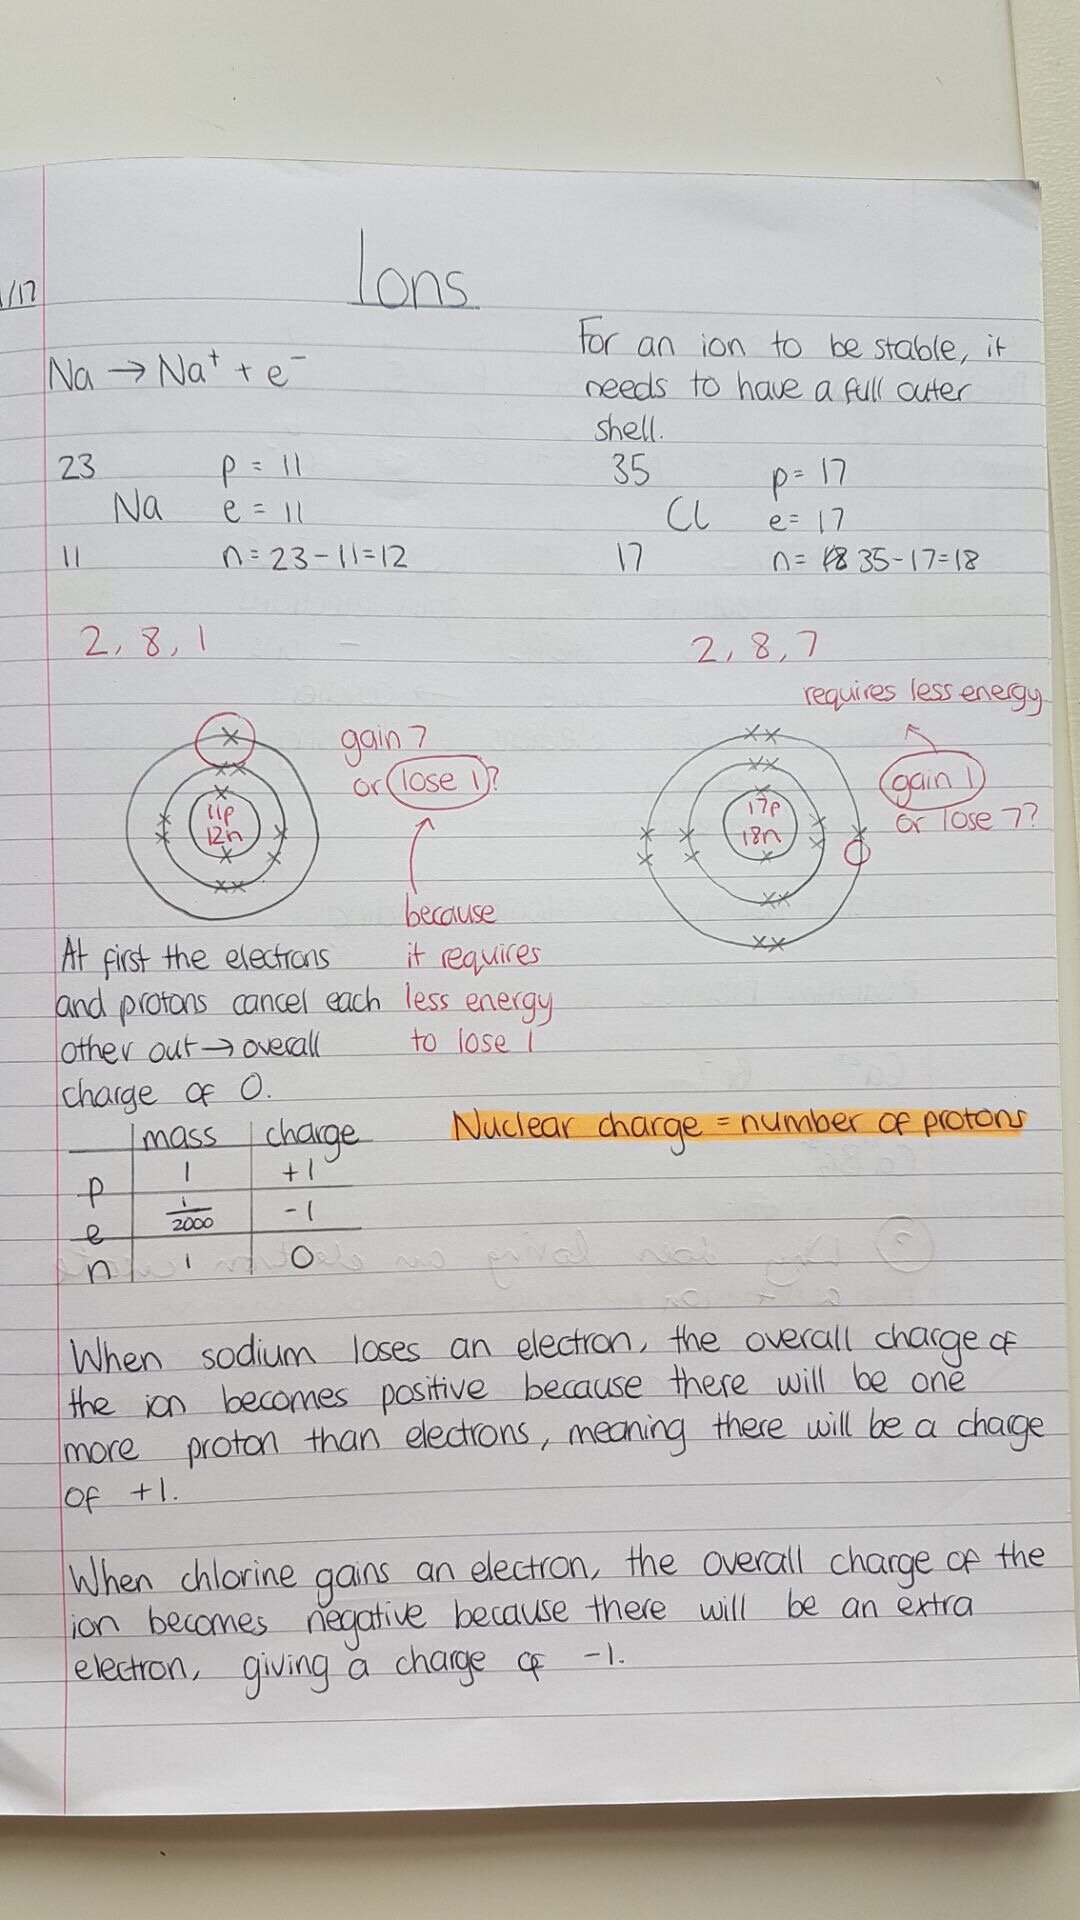 1/17
Ions
Na → Na⁺ + e⁻
For an ion to be stable, it
needs to have a full outer
shell.
23
Na
11
p = 11
e = 11
n = 23 - 11 = 12
35
Cl
17
p = 17
e = 17
n = 35 - 17 = 18
2, 8, 1
2, 8, 7
requires less energy
11p
12n
gain 7
or lose 1?
because
it requires
less energy
to lose 1
17p
18n
gain 1
or lose 7?
At first the electrons
and protons cancel each
other out → overall
charge of 0.
mass charge
p 1 +1
e 1/2000 -1
n 1 0
Nuclear charge = number of protons
When sodium loses an electron, the overall charge of
the ion becomes positive because there will be one
more proton than electrons, meaning there will be a charge
of +1.
When chlorine gains an electron, the overall charge of the
ion becomes negative because there will be an extra
electron, giving a charge of -1.